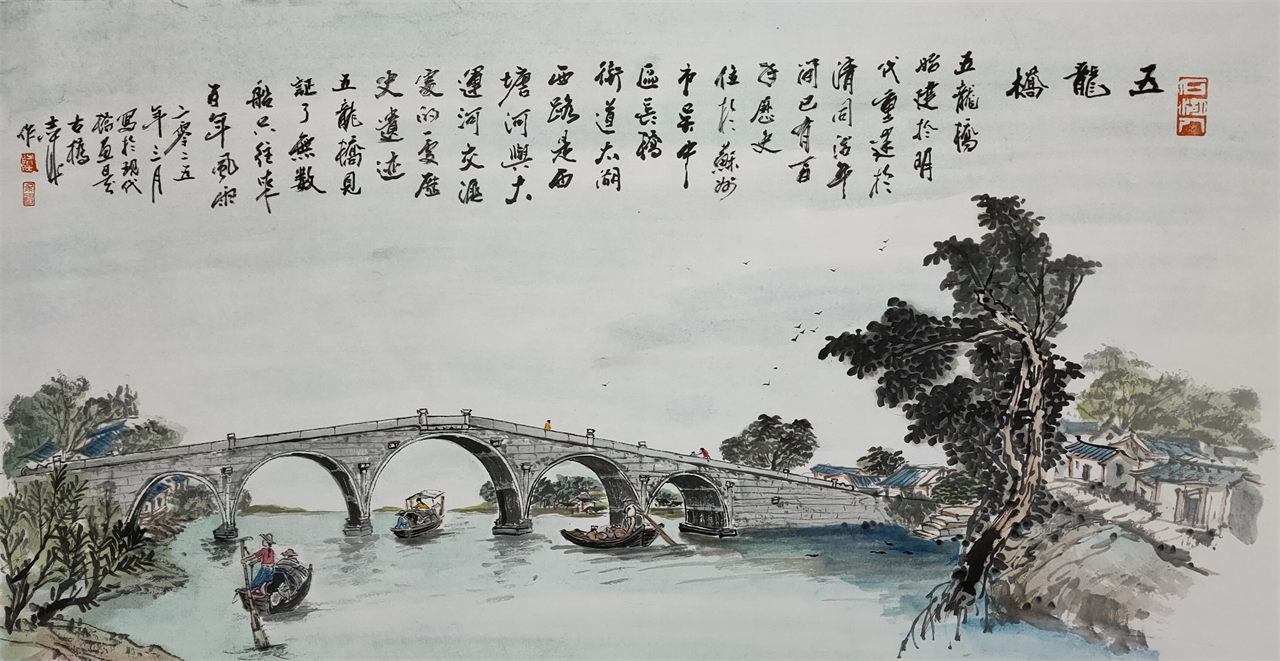 五龍橋
五龍橋
始建於明
代重建於
清同治年
間已有百
年歷史
位於蘇州
市吳中
區長橋
街道太湖
西路是西
塘河與大
運河交滙
處的歷
史遺迹
五龍橋見
証了無數
船只往來
百年風雨
二零二五
年三月
寫於現代
古橋
作